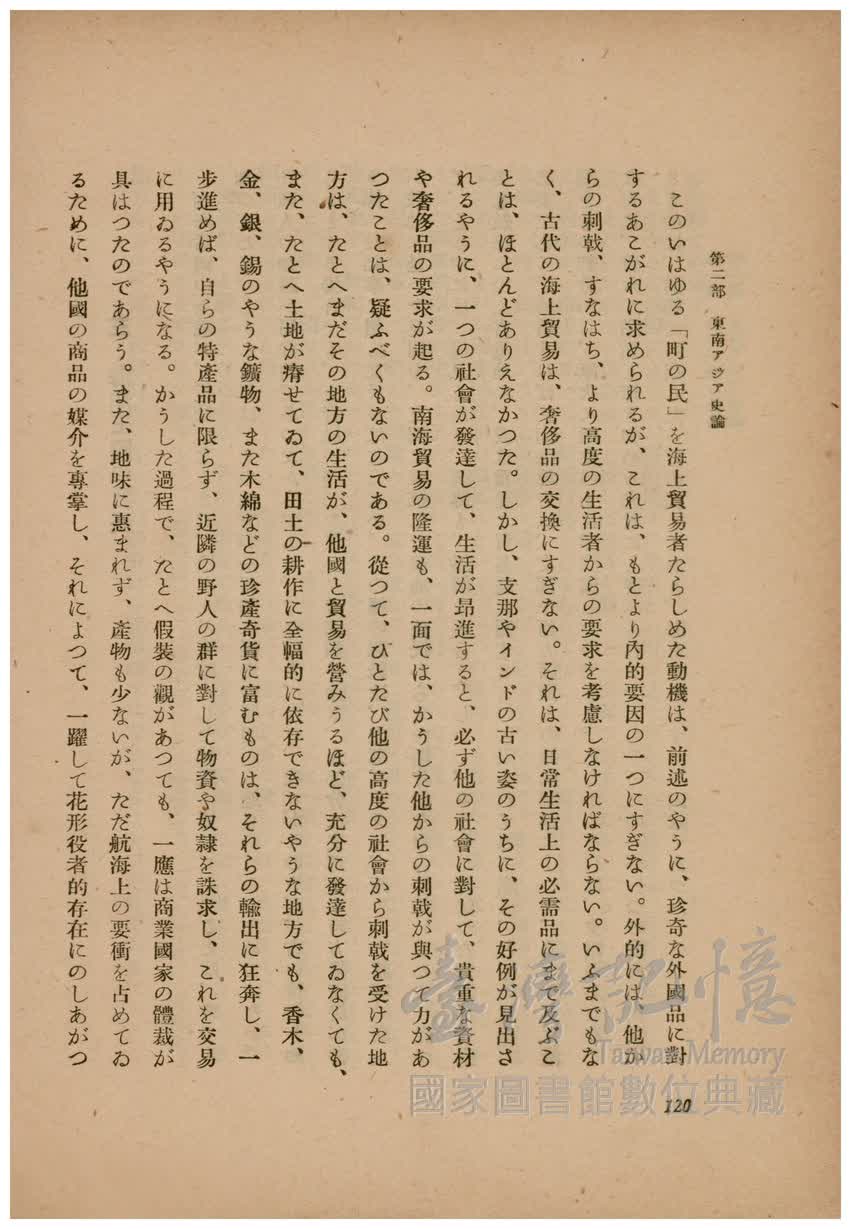 第二部　東南アジア史論
このいはゆる「町の民」を海上貿易者たらしめた動機は、前述のやうに、珍奇な外國品に對
するあこがれに求められるが、これは、もとより內的要因の一つにすぎない。外的には、他か
らの刺戟、すなはち、より高度の生活者からの要求を考慮しなければならない。いふまでもな
く、古代の海上貿易は、奢侈品の交換にすぎない。それは、日常生活上の必需品にまで及ぶこ
とは、ほとんどありえなかつた。しかし、支那やインドの古い姿のうちに、その好例が見出さ
れるやうに、一つの社會が發達して、生活が昂進すると、必ず他の社會に對して、貴重な資材
や奢侈品の要求が起る。南海貿易の隆運も、一面では、かうした他からの刺戟が與つて力があ
つたことは、疑ふべくもないのである。從つて、ひとたび他の高度の社會から刺戟を受けた地
方は、たとへまだその地方の生活が、他國と貿易を營みうるほど、充分に發達してゐなくても、
また、たとへ土地が瘠せてゐて、田土の耕作に全幅的に依存できないやうな地方でも、香木、
金、銀、錫のやうな鑛物、また木綿などの珍產奇貨に富むものは、それらの輸出に狂奔し、一
步進めば、自らの特產品に限らず、近隣の野人の群に對して物資や奴隸を誅求し、これを交易
に用ゐるやうになる。かうした過程で、たとへ假裝の觀があつても、一應は商業國家の體裁が
具はつたのであらう。また、地味に惠まれず、產物も少ないが、ただ航海上の要衝を占めてゐ
るために、他國の商品の媒介を專掌し、それによつて、一躍して花形役者的存在にのしあがつ
120
臺灣記憶
Taiwan Memory
國家圖書館數位典藏